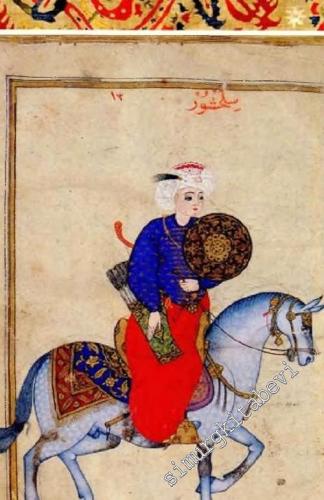 ١٣ سلحشور
simurgkitabevi